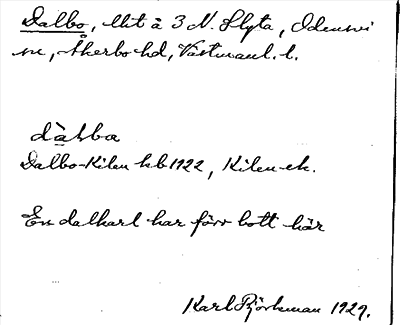 Dalbo, lht å 3 N. Slyta, Odensvi
ne, Åkerbo hd, Västmanl. l.
dàlbo
Dalbo-Kilen hb 1922, Kilen ek.
En dalkarl har förr bott här
Karl Björkman 1929.